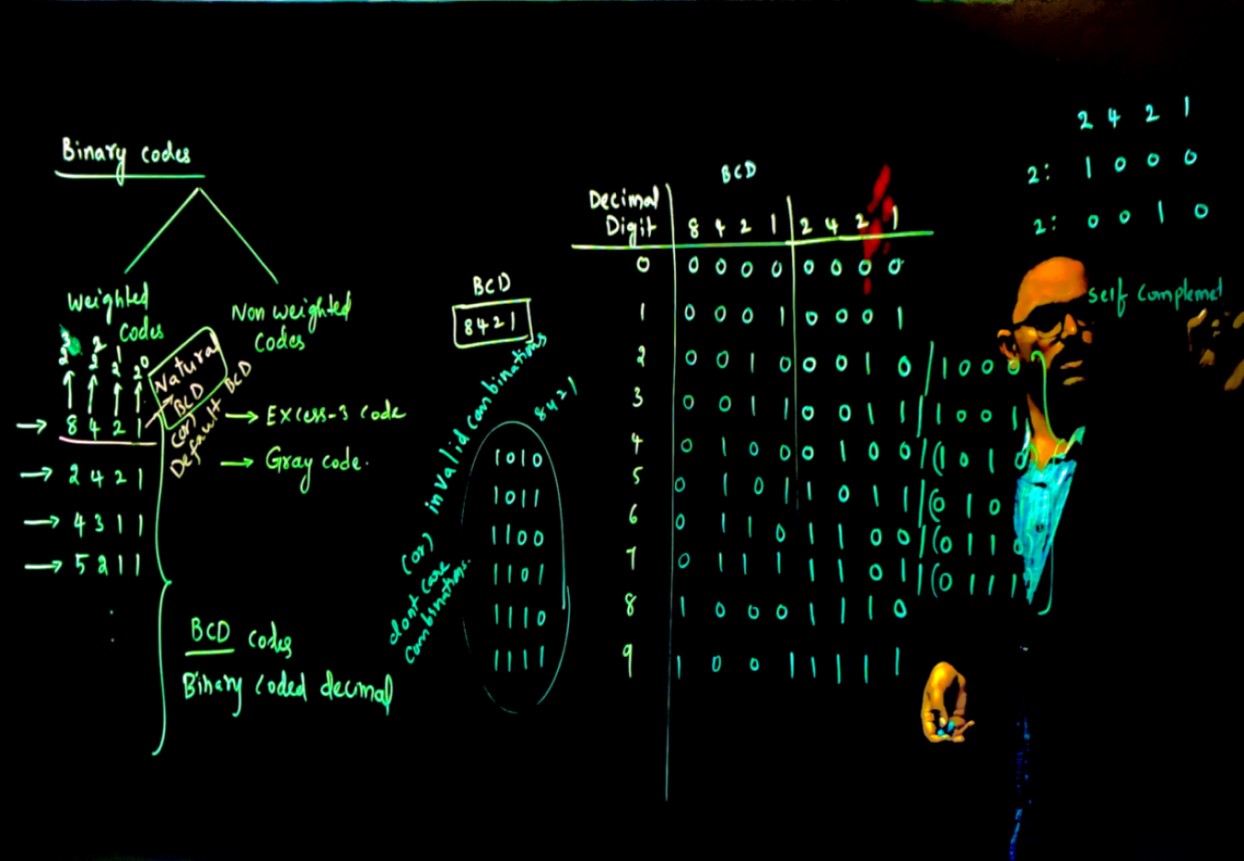 Binary codes
Weighted Codes
Non weighted Codes
2³ 2² 2¹ 2⁰
Natural BCD
(or)
Default BCD
→ 8 4 2 1
→ 2 4 2 1
→ 4 3 1 1
→ 5 2 1 1
→ Excess-3 code
→ Gray code.
BCD codes
Binary coded decimal
BCD
8421
invalid combinations
(or)
dont care combinations.
8421
1010
1011
1100
1101
1110
1111
BCD
Decimal Digit 8 4 2 1 2 4 2 1
0 0 0 0 0 0 0 0 0
1 0 0 0 1 0 0 0 1
2 0 0 1 0 0 0 1 0 / 1 0 0 0
3 0 0 1 1 0 0 1 1 / 1 0 0 1
4 0 1 0 0 0 1 0 0 / (1 0 1 0
5 0 1 0 1 1 0 1 1 / (0 1 0
6 0 1 1 0 1 1 0 0 / (0 1 1 0
7 0 1 1 1 1 1 0 1 / (0 1 1 1
8 1 0 0 0 1 1 1 0
9 1 0 0 1 1 1 1 1
2 4 2 1
2: 1 0 0 0
2: 0 0 1 0
Self Complement